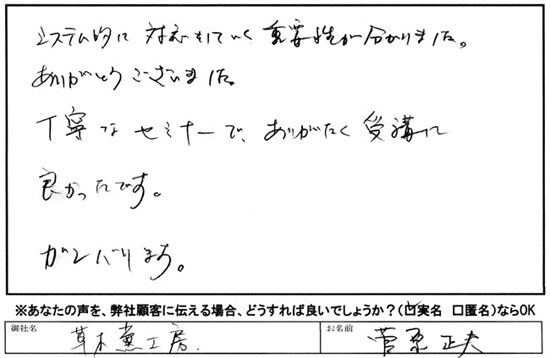 システム的に対応していく重要性が分かりました。
ありがとうございました。
丁寧なセミナーで、ありがたく受講に
良かったです。
ガンバります。
※あなたの声を、弊社顧客に伝える場合、どうすれば良いでしょうか？(☑実名 □匿名)ならOK
御社名 草木薫工房. お名前 菅原正夫